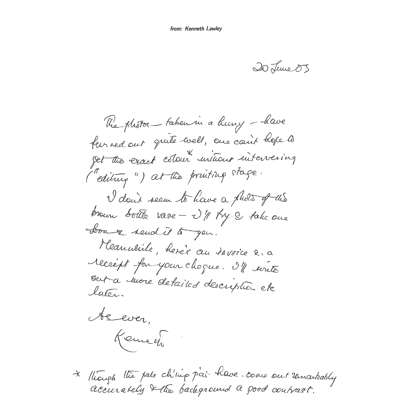 from: Kenneth Lawley
20 June 03
The photos – taken in a hurry – have
turned out quite well, one can't hope to
get the exact colour* without intervening
("editing") at the printing stage.
I don't seem to have a photo of the
brown bottle vase – I'll try & take one
soon & send it to you.
Meanwhile, here's an invoice & a
receipt for your cheque. I'll write
out a more detailed description etc
later.
As ever,
Kenneth
* though the pale ch'ing p'ai have come out remarkably
accurately & the background a good contrast.